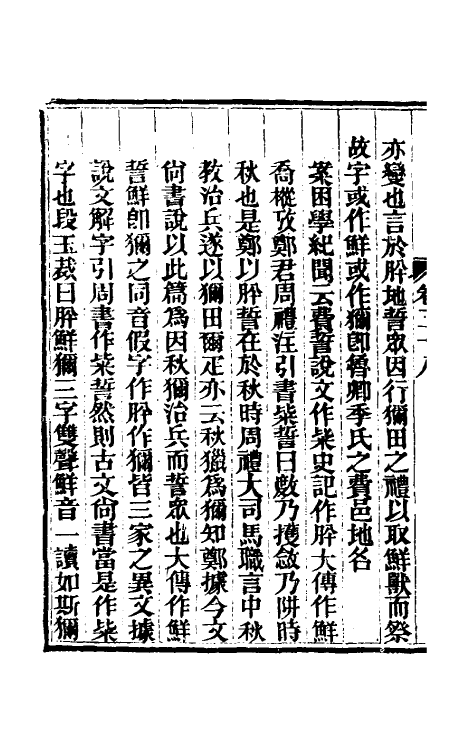 卷二十八
亦變也言於肸地誓眾因行獮田之禮以取鮮獸而祭
故字或作鮮或作獮卽魯卿季氏之費邑地名
案困學紀聞云費誓說文作粊史記作肸大傳作鮮
喬樅攷鄭君周禮注引書粊誓曰敿乃擭斂乃阱時
秋也是鄭以肸誓在於秋時周禮大司馬職言中秋
教治兵遂以獮田爾疋亦云秋獵爲獮知鄭據今文
尙書說以此篇爲因秋獮治兵而誓眾也大傳作鮮
誓鮮卽獮之同音假字作肸作獮皆三家之異文據
說文解字引周書作粊誓然則古文尙書當是作粊
字也段玉裁曰肸鮮獮三字雙聲鮮音一讀如斯獮